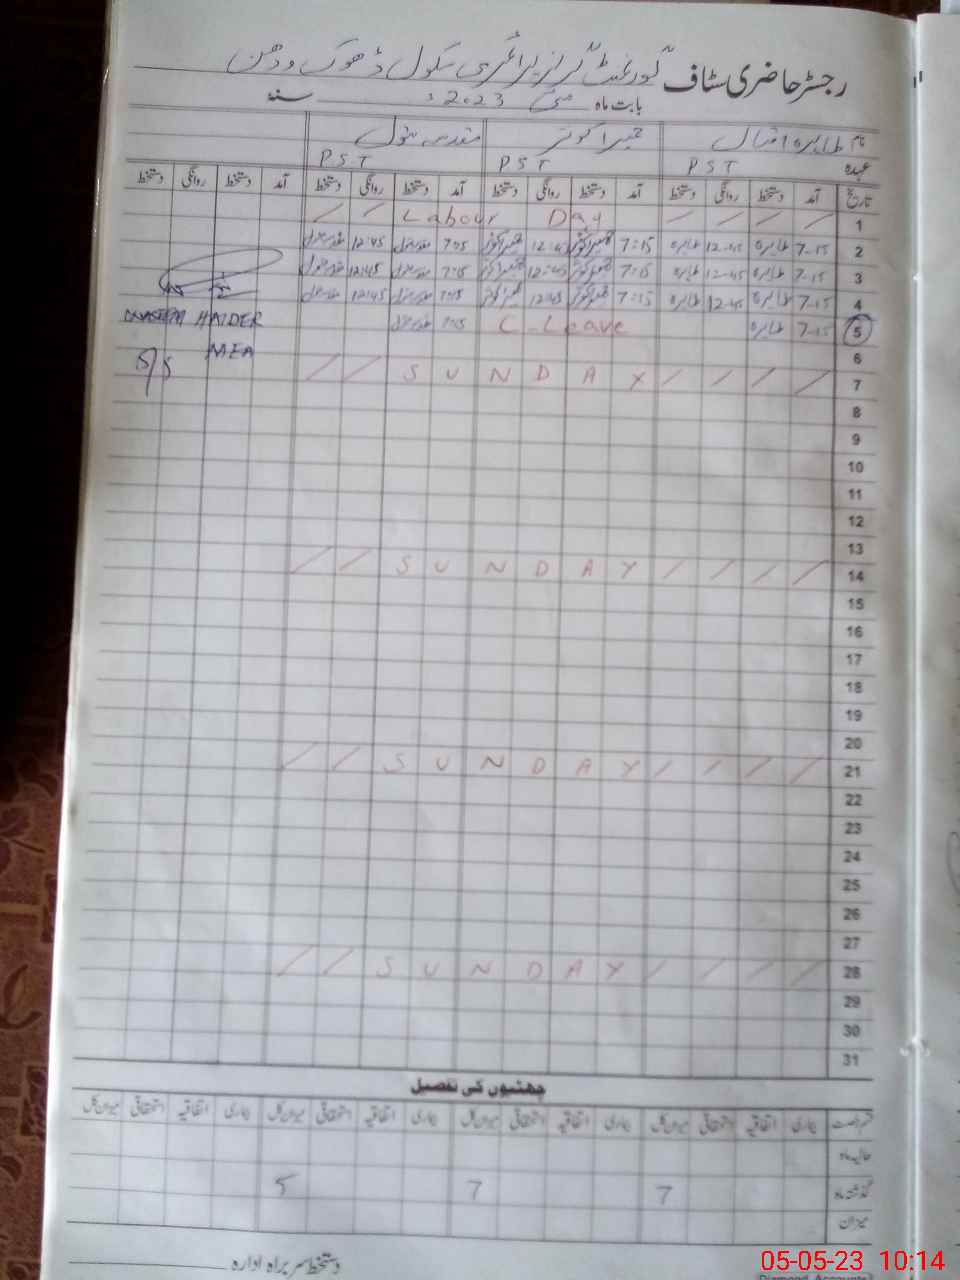 رجسٹر حاضری سٹاف گورنمنٹ گرلز پرائمری سکول ڈھوک ودھن
بابت ماہ مئی 2023ء سنہ
نام طاہرہ اقبال حمیرا کوثر مقدس بتول
عہدہ PST PST PST
تاریخ آمد دستخط روانگی دستخط آمد دستخط روانگی دستخط آمد دستخط روانگی دستخط آمد دستخط روانگی دستخط
1 Labour Day
2 7-15 طاہرہ 12-45 طاہرہ 7:15 حمیرا کوثر 12:45 حمیرا کوثر 7:15 مقدس بتول 12:45 مقدس بتول
3 7-15 طاہرہ 12-45 طاہرہ 7:15 حمیرا کوثر 12:45 حمیرا کوثر 7:15 مقدس بتول 12:45 مقدس بتول
4 7-15 طاہرہ 12-45 طاہرہ 7:15 حمیرا کوثر 12:45 حمیرا کوثر 7:15 مقدس بتول 12:45 مقدس بتول
5 7-15 طاہرہ C-Leave 7:15 مقدس بتول HAIDER
6 MEA
7 SUNDAY 5/5
8
9
10
11
12
13
14 SUNDAY
15
16
17
18
19
20
21 SUNDAY
22
23
24
25
26
27
28 SUNDAY
29
30
31
چھٹیوں کی تفصیل
قسم رخصت بیماری اتفاقیہ استحقاقی میزان کل بیماری اتفاقیہ استحقاقی میزان کل بیماری اتفاقیہ استحقاقی میزان کل بیماری اتفاقیہ استحقاقی میزان کل
حالیہ ماہ
گذشتہ ماہ 7 7 5
میزان
دستخط سربراہ ادارہ
05-05-23 10:14